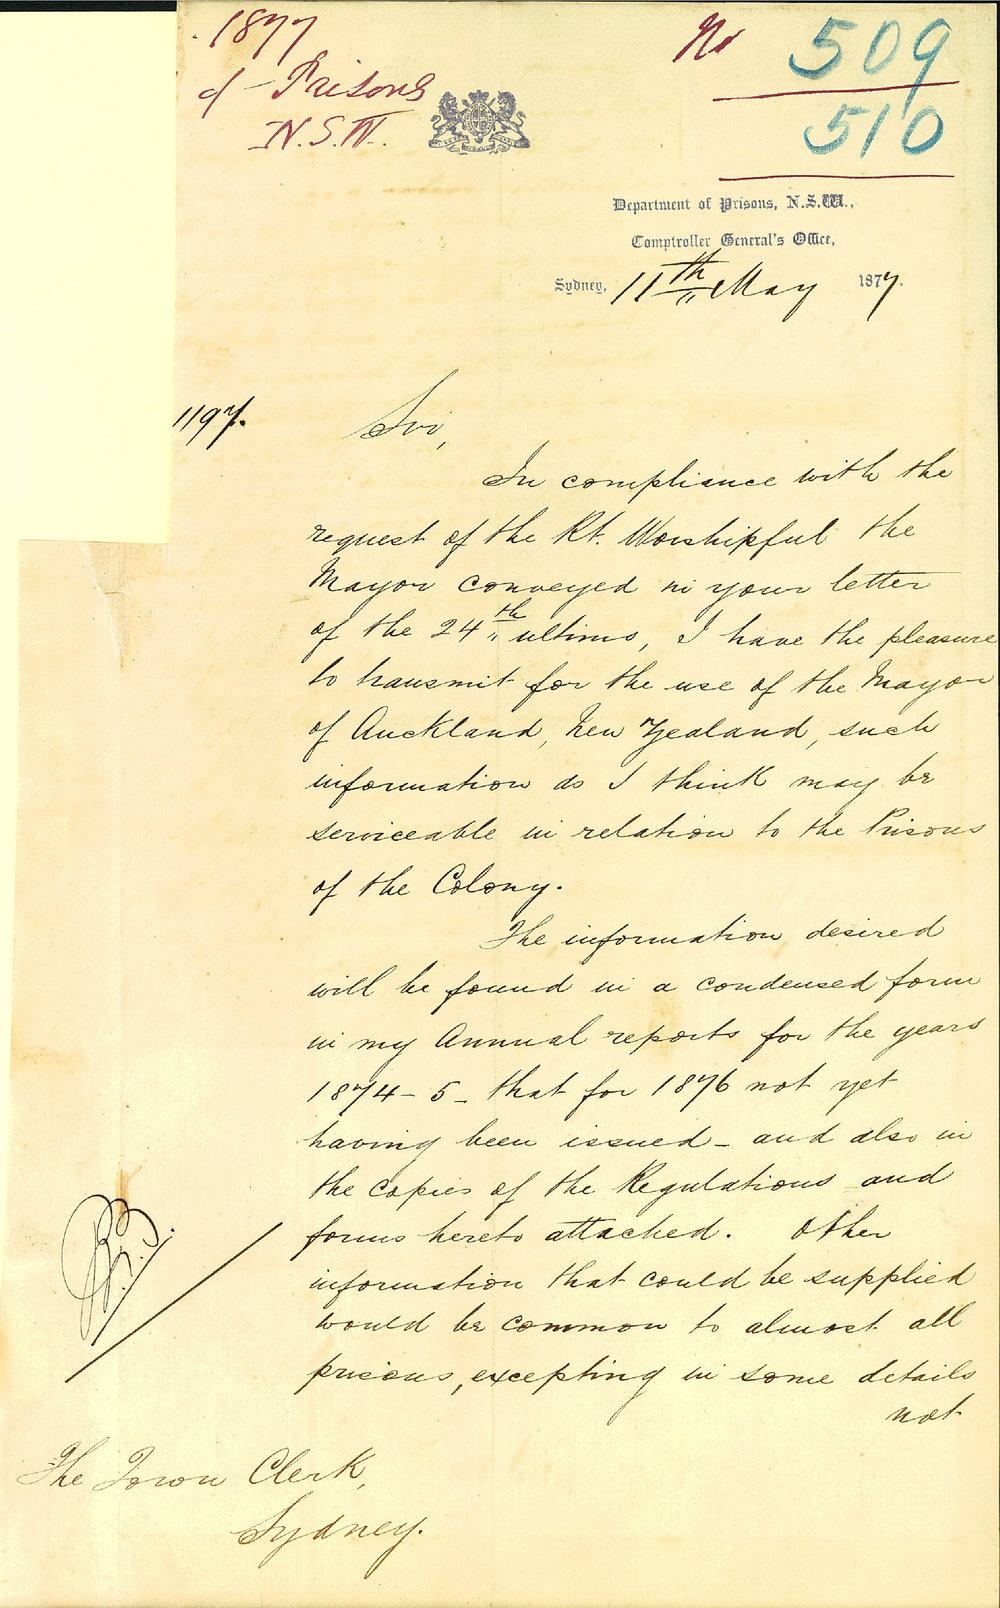 . 1877
of Prisons
N.S.W.
No 509
510
Department of Prisons, N.S.W.,
Comptroller General's Office,
Sydney, 11th May 1877.
1197.
Sir,
In compliance with the
request of the Rt. Worshipful the
Mayor conveyed in your letter
of the 24th ultimo, I have the pleasure
to transmit for the use of the Mayor
of Auckland, New Zealand, such
information as I think may be
serviceable in relation to the Prisons
of the Colony.
The information desired
will be found in a condensed form
in my Annual reports for the years
1874-5 - that for 1876 not yet
having been issued - and also in
the copies of the Regulations and
forms hereto attached. Other
information that could be supplied
would be common to almost all
prisons, excepting in some details
not
The Town Clerk,
Sydney.